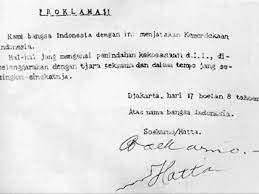 P R O K L A M A S I
Kami bangsa Indonesia dengan ini menjatakan Kemerdekaan
Indonesia.
Hal-hal jang mengenai pemindahan kekoeasaan d.l.l., di-
selenggarakan dengan tjara seksama dan dalam tempo jang se-
singkat-singkatnja.
Djakarta, hari 17 boelan 8 tahoen
Atas nama bangsa Indonesia.
Soekarno/Hatta.
Soekarno.
Hatta